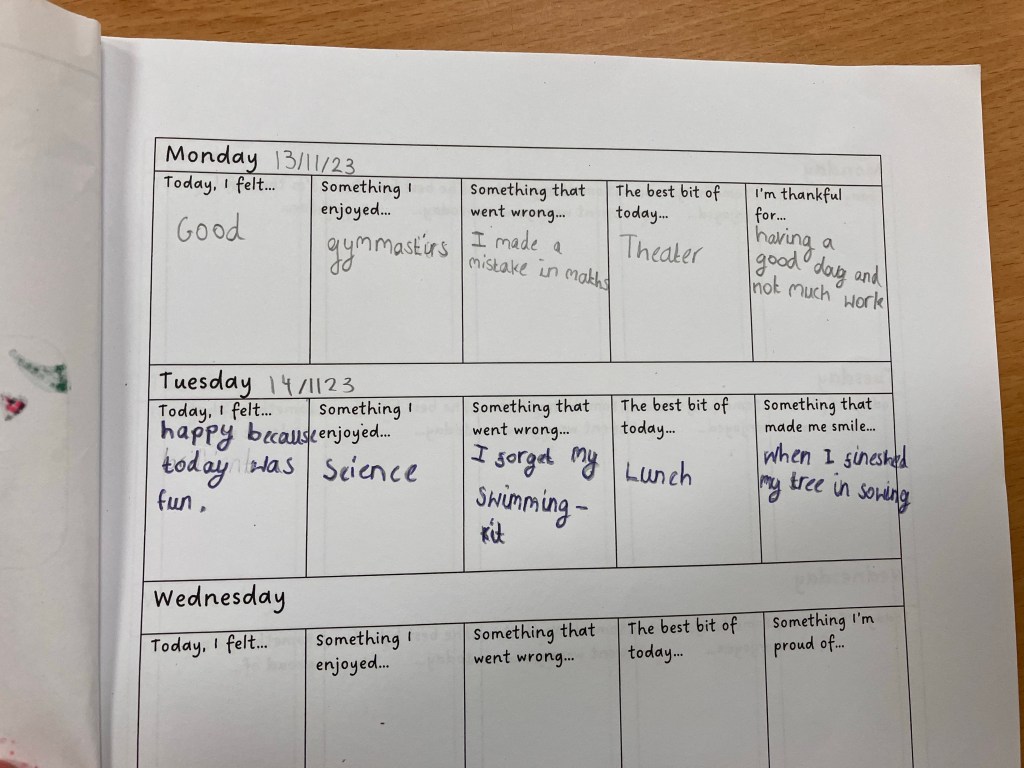 Monday 13/11/23
Today, I felt...
Good
Something I
enjoyed...
gymmastirs
Something that
went wrong...
I made a
mistake in maths
The best bit of
today...
Theater
I'm thankful
for...
having a
good day and
not much work
Tuesday 14/1123
Today, I felt...
happy because
today was
fun.
Something I
enjoyed...
Science
Something that
went wrong...
I forget my
swimming-
kit
The best bit of
today...
Lunch
Something that
made me smile...
when I fineshed
my tree in sowing
Wednesday
Today, I felt...
Something I
enjoyed...
Something that
went wrong...
The best bit of
today...
Something I'm
proud of...